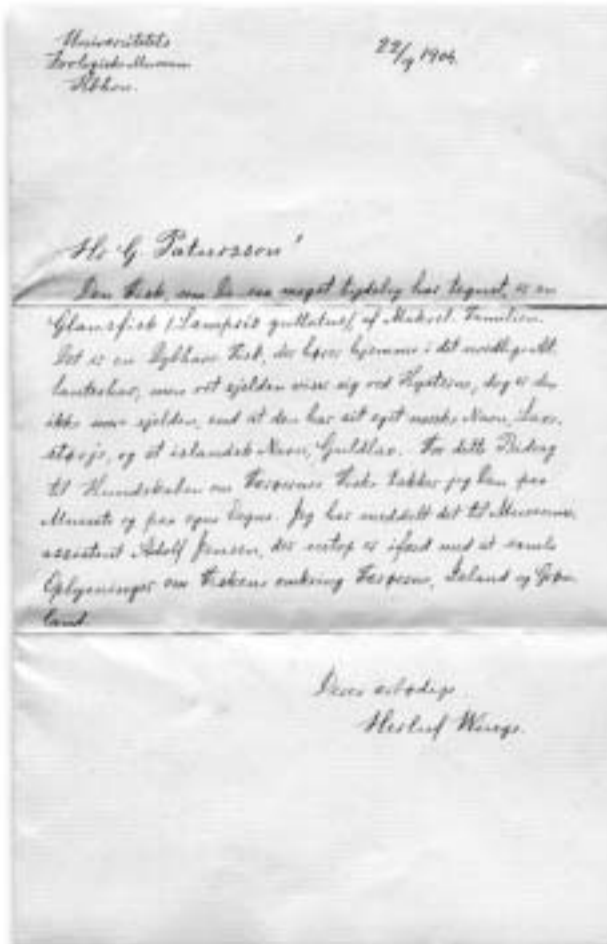 Universitetets
Zoologiske Museum
Kbhvn.
22/9 1904
Hr G Patursson!
Den Fisk, som De saa meget tydelig har tegnet, er en
Glansfisk (Lampris guttatus) af Makrel-Familien.
Det er en Dybhavs Fisk, der hører hjemme i det nordlige At-
lanterhav, men ret sjelden viser sig ved Kysterne, dog er den
ikke mere sjelden, end at den har sit eget norske Navn, Laxe-
størje, og et islandsk Navn, Guldlax. For dette Bidrag
til Kundskaben om Færøernes Fiske takker jeg Dem paa
Museets og paa egne Vegne. Jeg har meddelt det til Museums-
assistent Adolf Jensen, der netop er ifærd med at samle
Oplysninger om Fiskene omkring Færøerne, Island og Grøn-
land.
Deres ærbødige
Herluf Winge.